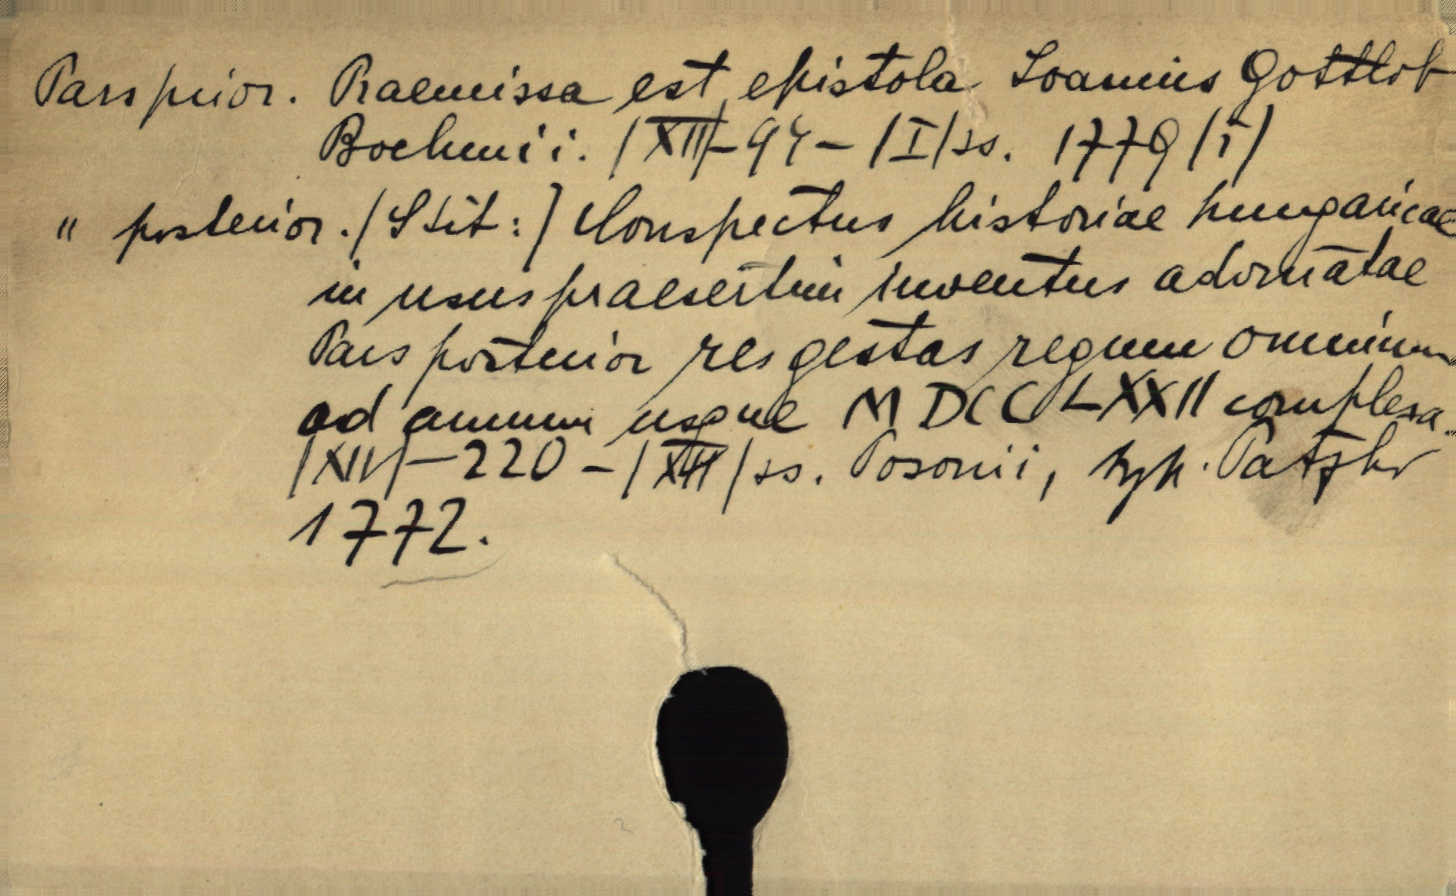 Pars prior. Praemissa est epistola Ioannis Gottlob
Boehmii. /XII/-94-/I/ss. 1779 /?/
" posterior. /S tit:/ Conspectus historiae hungaricae
in usus praesertim iuventus adornatae
Pars posterior res gestas regum omnium
ad annum usque MDCCLXXII complexa.
/XII/-220-/XIII/ss. Posonii, typ. Patzko
1772.